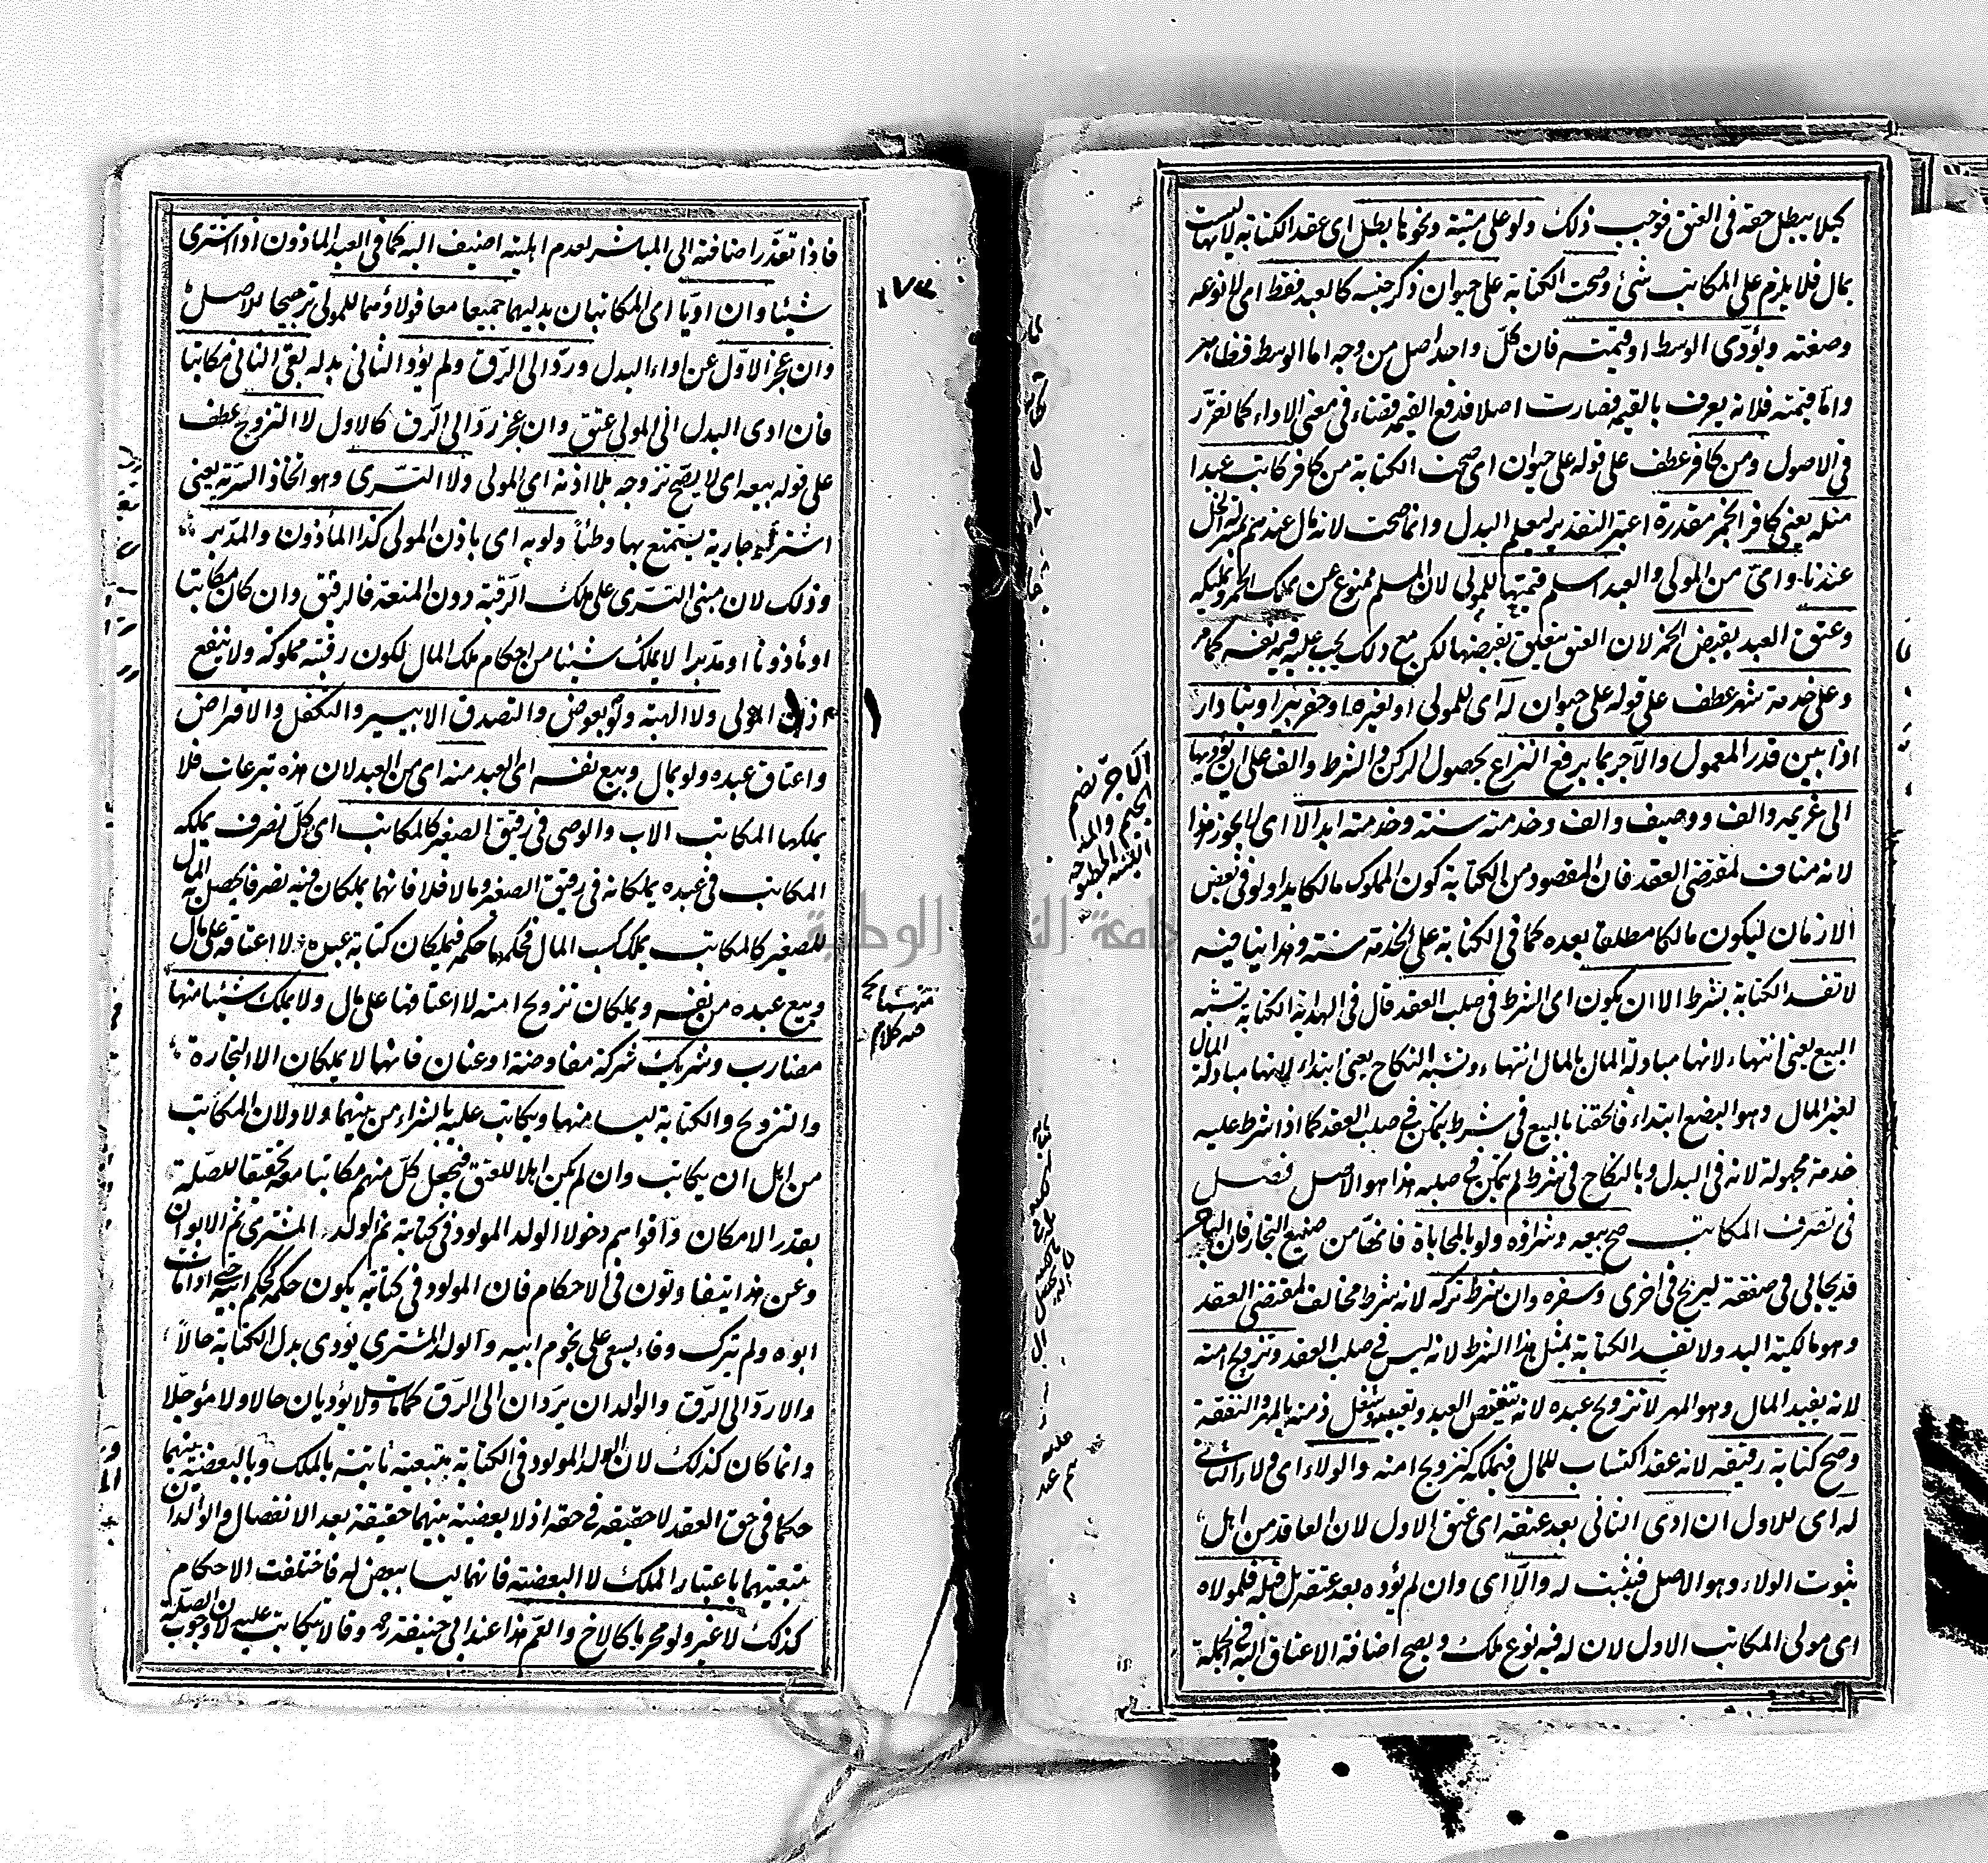 كيلا يبطل حقه في العتق فوجب ذلك ولو على ميتة ونحوها بطل اى عقد الكتابة لانها ليست
بمال فلا يلزم على المكاتب شئ وصحت الكتابة على حيوان ذكر جنسه كالعبد فقط اى لا نوعه
وصفته ويؤدّى الوسط او قيمته فان كلّ واحد اصل من وجه اما الوسط فظاهر
وامّا قيمته فلانه يعرف بالقيمة فصارت اصلا فدفع القيمة قضاء في معنى الاداء كما تقرّر
في الاصول ومن كافر عطف على قوله على حيوان اى صحت الكتابة من كافر كاتب عبدا
مثله يعنى كافر الخمر مقدرة اعتبر التقدير ليعلم البدل وانما صحت لانه مال عندهم بمنزلة الخل
عندنا واىّ من المولى والعبد اسلم قيمتها للمولى لان المسلم ممنوع عن تملك الخمر وتمليكه
وعتق العبد بقبض الخمر لان العتق متعلق بقبضها لكن مع ذلك يجب عليه قيمة نفسه كما مر
وعلى خدمة شهر عطف على قوله على حيوان له اى للمولى او لغيره او حفر بئر او بناء دار
اذا بين قدر المعمول والآجر بما يرفع النزاع بحصول الركن والشرط والف على ان يؤديها
الى غريمه والف ووصيف والف وخدمته سنة وخدمته ابدا لا اى لا يجوز هذا
لانه مناف لمقتضى العقد فان المقصود من الكتابة كون المملوك مالكا يدا ولو في بعض
الازمان ليكون مالكا مطلقا بعده كما في الكتابة على الخدمة سنة وهذا ينافيه
لا تفسد الكتابة بشرط الا ان يكون اى الشرط في صلب العقد قال في الهداية الكتابة تشبه
البيع يعنى انتهاء لانها مبادلة المال بالمال انتهاء وتشبه النكاح يعنى ابتداء لانها مبادلة المال
لغير المال وهو البضع ابتداء فالحقنا بالبيع في شرط يتمكن في صلب العقد كما اذا شرط عليه
خدمة مجهولة لانه في البدل وبالنكاح في شرط لم يتمكن في صلبه هذا هو الاصل فصل
في تصرف المكاتب صح بيعه وشراؤه ولو بالمحاباة فانها من صنيع التجار فان التاجر
قد يحابي في صفقة ليربح في اخرى وسفره وان شرط تركه لانه شرط مخالف لمقتضى العقد
وهو مالكية اليد ولا تفسد الكتابة بمثل هذا الشرط لانه ليس في صلب العقد وتزويج امته
لانه يفيد المال وهو المهر لا تزويج عبده لانه تنقيص العبد وتعييبه وشغل ذمته بالمهر والنفقة
وصح كتابة رقيقه لانه عقد اكتساب للمال فيملكه كتزويج امته والولاء اى ولاء الثاني
له اى للاول ان ادى الثاني بعد عتقه اى عتق الاول لان العاقد من اهل
ثبوت الولاء وهو الاصل فيثبت له والّا اى وان لم يؤده بعد عتقه بل قبله فلمولاه
اى مولى المكاتب الاول لان له فيه نوع ملك ويصح اضافة الاعتاق اليه في الجملة
الآجرّ بضم
الجيم والمد
اللبنة المطبوخة
فاذا تعذّر اضافته الى المباشر لعدم اهليته اضيف اليه كما في العبد الماذون اذا اشترى
شيئا وان ادّيا اى المكاتبان بدليهما جميعا معا فولاؤهما للمولى ترجيحا للاصل
وان عجز الاوّل عن اداء البدل وردّ الى الرّق ولم يؤد الثاني بدله بقى الثاني مكاتبا
فان ادى البدل الى المولى عتق وان عجز ردّ الى الرّق كالاول لا التزوج عطف
على قوله بيعه اى لا يصح تزوجه بلا اذنه اى المولى ولا التسّرى وهو اتخاذ السّرّية يعنى
اشترى جارية يستمتع بها وطئا ولو به اى باذن المولى كذا المأذون والمدّبر
وذلك لان مبنى التسّرى على ملك الرّقبة دون المتعة فالرقيق وان كان مكاتبا
او مأذونا او مدّبرا لا يملك شيئا من احكام ملك المال لكون رقبته مملوكة ولا ينفع
اذن المولى ولا الهبة ولو بعوض والتصدق الا بيسير والتكفل والاقراض
واعتاق عبده ولو بمال وبيع نفسه اى العبد منه اى من العبد لان هذه تبرعات فلا
يملكها المكاتب الاب والوصى في رقيق الصغير كالمكاتب اى كلّ تصرف يملكه
المكاتب في عبده يملكانه في رقيق الصغير وما لا فلا فانهما يملكان فيه تصرفا يحصل به المال
للصغير كالمكاتب يملك كسب المال فحكمهما حكمه فيملكان كتابة عبده لا اعتاقه على مال
وبيع عبده من نفسه ويملكان تزويج امته لا اعتاقها على مال ولا يملك شيئا منها
مضارب وشريك شركة مفاوضة او عنان فانهما لا يملكان الا التجارة
والتزويج والكتابة ليسا منها ويكاتب عليه بالشراء من بينهما ولاد لان المكاتب
من اهل ان يكاتب وان لم يكن اهلا للعتق فيجعل كلّ منهم مكاتبا معه تحقيقا للصّلة
بقدر الامكان واقواهم دخولا الولد المولود في كتابته ثم الولد المشترى ثم الابوان
وعن هذا يتفاوتون في الاحكام فان المولود في كتابته يكون حكمه كحكم ابيه حتى اذا مات
ابوه ولم يترك وفاء يسعى على نجوم ابيه والولد المشترى يؤدى بدل الكتابة حالّا
والا ردّ الى الرّق والوالدان يردّان الى الرّق كما مات ولا يؤديان حالا ولا مؤجلا
وانما كان كذلك لان الولد المولود في الكتابة تبعيته ثابتة بالملك وبالبعضية بينهما
حكما في حق العقد لا حقيقة في حقه اذ لا بعضية بينهما حقيقة بعد الانفصال والوالدان
تبعيتهما باعتبار الملك لا البعضية فانهما ليسا ببعض له فاختلفت الاحكام
كذلك لا غير ولو محرما كالاخ والعّم هذا عند ابي حنيفة ره وقالا يتكاتب عليه لان وجوب الصلة
١٧٣